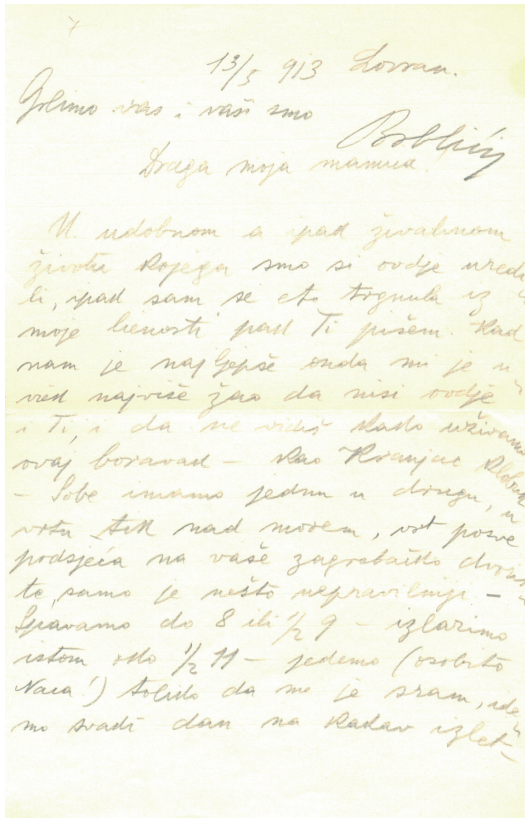 13/5 913 Lovran.
Grlimo vas i vaši smo
Brblići
Draga moja mamica.
U udobnom a ipak živahnom
životu kojega smo si ovdje uredi
li, ipak sam se eto trgnula iz
moje lienosti pak Ti pišem. Kad
nam je najljepše onda mi je u
viek najviše žao da nisi ovdje
i Ti, i da ne vidiš kako uživamo
ovaj boravak – kao Kranjac
– Sobe imamo jednu u drugu, u
vrtu tik nad morem, vrt posve
podsjeća na vaše zagrebačko dvoriš
te, samo je nešto nepravilniji –
Spavamo do 8 ili ½ 9 – izlazimo
istom oko ½ 11 – jedemo (osobito
Naca!) toliko da me je sram, ide
mo svaki dan na kakav izlet –